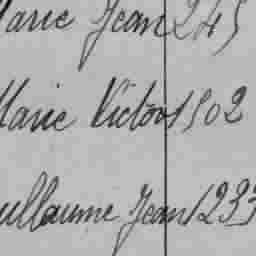 Marie Jean 245
Marie Victor 1502
Guillaume Jean 1233